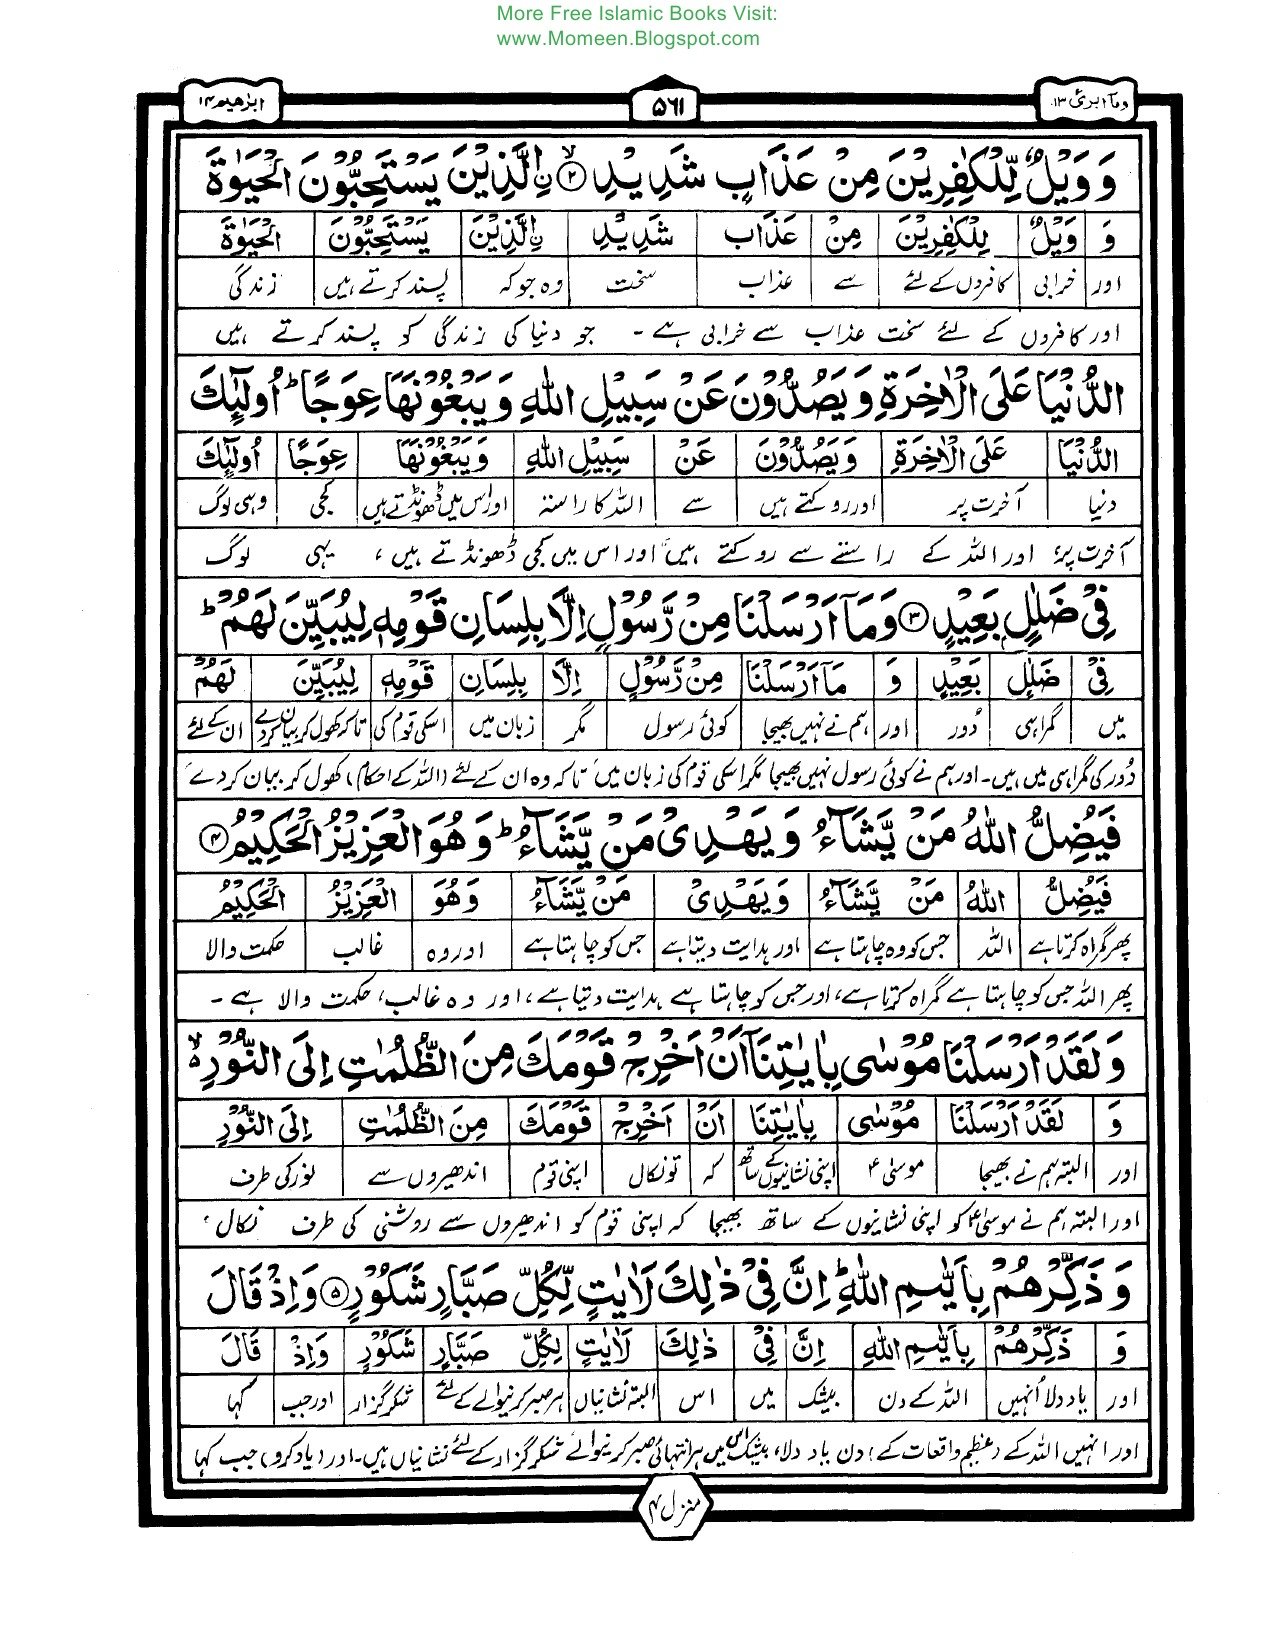 More Free Islamic Books Visit:
www.Momeen.Blogspot.com
وماۤ ابرئ ۱۳
۵۶۱
ابرٰهیم ۱۴
وَ وَيْلٌ لِّلْكٰفِرِيْنَ مِنْ عَذَابٍ شَدِيْدٍ ۙ﴿۲﴾ نِ الَّذِيْنَ يَسْتَحِبُّوْنَ الْحَيٰوةَ
وَ وَيْلٌ لِلْكٰفِرِيْنَ مِنْ عَذَابٍ شَدِيْدٍ نِ الَّذِيْنَ يَسْتَحِبُّوْنَ الْحَيٰوةَ
اور خرابی کافروں کے لئے سے عذاب سخت وہ جو کہ پسند کرتے ہیں زندگی
اور کافروں کے لئے سخت عذاب سے خرابی ہے۔ جو دنیا کی زندگی کو پسند کرتے ہیں
الدُّنْيَا عَلَى الْاٰخِرَةِ وَيَصُدُّوْنَ عَنْ سَبِيْلِ اللّٰهِ وَيَبْغُوْنَهَا عِوَجًا ؕ اُولٰٓئِكَ
الدُّنْيَا عَلَى الْاٰخِرَةِ وَيَصُدُّوْنَ عَنْ سَبِيْلِ اللّٰهِ وَيَبْغُوْنَهَا عِوَجًا اُولٰٓئِكَ
دنیا آخرت پر اور روکتے ہیں سے اللہ کا راستہ اور اس میں ڈھونڈتے ہیں کجی وہی لوگ
آخرت پر، اور اللہ کے راستے سے روکتے ہیں اور اس میں کجی ڈھونڈتے ہیں، یہی لوگ
فِيْ ضَلٰلٍۢ بَعِيْدٍ ﴿۳﴾ وَمَاۤ اَرْسَلْنَا مِنْ رَّسُوْلٍ اِلَّا بِلِسَانِ قَوْمِهٖ لِيُبَيِّنَ لَهُمْ ؕ
فِيْ ضَلٰلٍ بَعِيْدٍ وَ مَاۤ اَرْسَلْنَا مِنْ رَّسُوْلٍ اِلَّا بِلِسَانِ قَوْمِهٖ لِيُبَيِّنَ لَهُمْ
میں گمراہی دُور اور ہم نے نہیں بھیجا کوئی رسول مگر زبان میں اسکی قوم کی تاکہ کھول کر بیان کردے ان کے لئے
دُور کی گمراہی میں ہیں۔ اور ہم نے کوئی رسول نہیں بھیجا مگر اسکی قوم کی زبان میں تاکہ وہ ان کے لئے (اللہ کے احکام) کھول کر بیان کردے
فَيُضِلُّ اللّٰهُ مَنْ يَّشَآءُ وَيَهْدِيْ مَنْ يَّشَآءُ ؕ وَهُوَ الْعَزِيْزُ الْحَكِيْمُ ﴿۴﴾
فَيُضِلُّ اللّٰهُ مَنْ يَّشَآءُ وَيَهْدِيْ مَنْ يَّشَآءُ وَهُوَ الْعَزِيْزُ الْحَكِيْمُ
پھر گمراہ کرتا ہے اللہ جس کو وہ چاہتا ہے اور ہدایت دیتا ہے جس کو چاہتا ہے اور وہ غالب حکمت والا
پھر اللہ جس کو چاہتا ہے گمراہ کرتا ہے، اور جس کو چاہتا ہے ہدایت دیتا ہے، اور وہ غالب، حکمت والا ہے۔
وَلَقَدْ اَرْسَلْنَا مُوْسٰى بِاٰيٰتِنَاۤ اَنْ اَخْرِجْ قَوْمَكَ مِنَ الظُّلُمٰتِ اِلَى النُّوْرِ ۙ۬
وَ لَقَدْ اَرْسَلْنَا مُوْسٰى بِاٰيٰتِنَا اَنْ اَخْرِجْ قَوْمَكَ مِنَ الظُّلُمٰتِ اِلَى النُّوْرِ
اور البتہ ہم نے بھیجا موسیٰ ؑ اپنی نشانیوں کے ساتھ کہ تو نکال اپنی قوم اندھیروں سے نور کی طرف
اور البتہ ہم نے موسیٰؑ کو اپنی نشانیوں کے ساتھ بھیجا کہ اپنی قوم کو اندھیروں سے روشنی کی طرف نکال،
وَذَكِّرْهُمْ بِاَيّٰىمِ اللّٰهِ ؕ اِنَّ فِيْ ذٰلِكَ لَاٰيٰتٍ لِّكُلِّ صَبَّارٍ شَكُوْرٍ ﴿۵﴾ وَاِذْ قَالَ
وَ ذَكِّرْهُمْ بِاَيّٰىمِ اللّٰهِ اِنَّ فِيْ ذٰلِكَ لَاٰيٰتٍ لِكُلِّ صَبَّارٍ شَكُوْرٍ وَاِذْ قَالَ
اور یاد دلا اُنہیں اللہ کے دن بیشک میں اس البتہ نشانیاں ہر صبر کرنیوالے کے لئے شکر گزار اور جب کہا
اور انہیں اللہ کے (عظیم واقعات کے) دن یاد دلا، بیشک اس میں ہر انتہائی صبر کرنیوالے شکر گزار کے لئے نشانیاں ہیں۔ اور (یاد کرو) جب کہا
منزل ۳